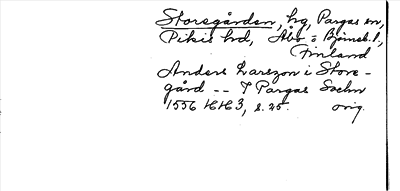 Storegården, hg, Pargas sn,
Pikis hd, Åbo o Bjömeb. l,
Finland
Anders Larszon i Store-
gård -- I Pargas Sochn
1556 HH 3, s. 25. orig.